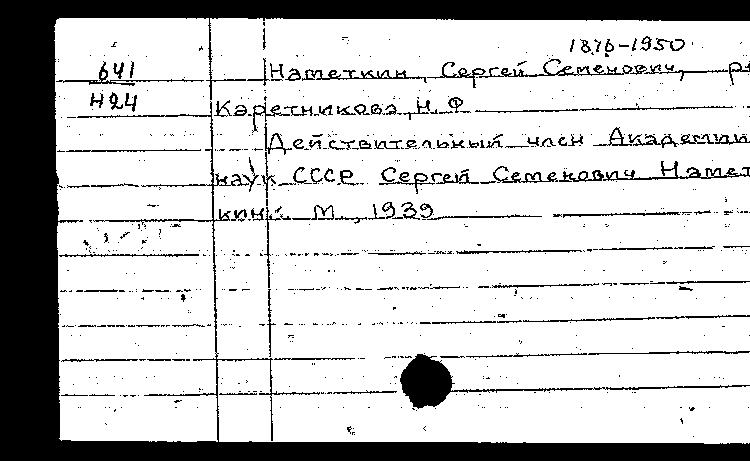 1876-1950
641 Наметкин, Сергей Семенович,
Н24 Каретникова, Н. Ф
Действительный член Академии
наук СССР Сергей Семенович Намет
кин. М., 1939